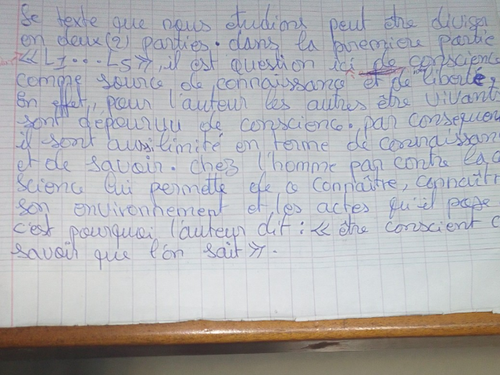 Le texte que nous étudions peut être diviser
en deux (2) parties. dans la première partie
« L1 ... L5 », il est question ici de conscience
comme source de connaissance et de liberté.
En effet, pour l'auteur les autres être vivant
sont dépourvu de conscience. par conséquent
il sont aussi limité en terme de connaissance
et de savoir. chez l'homme par contre la
science lui permette de ce connaître, connaîtr
son environnement et les actes qu'il pose
c'est pourquoi l'auteur dit : « être conscient c
savoir que l'on sait ».